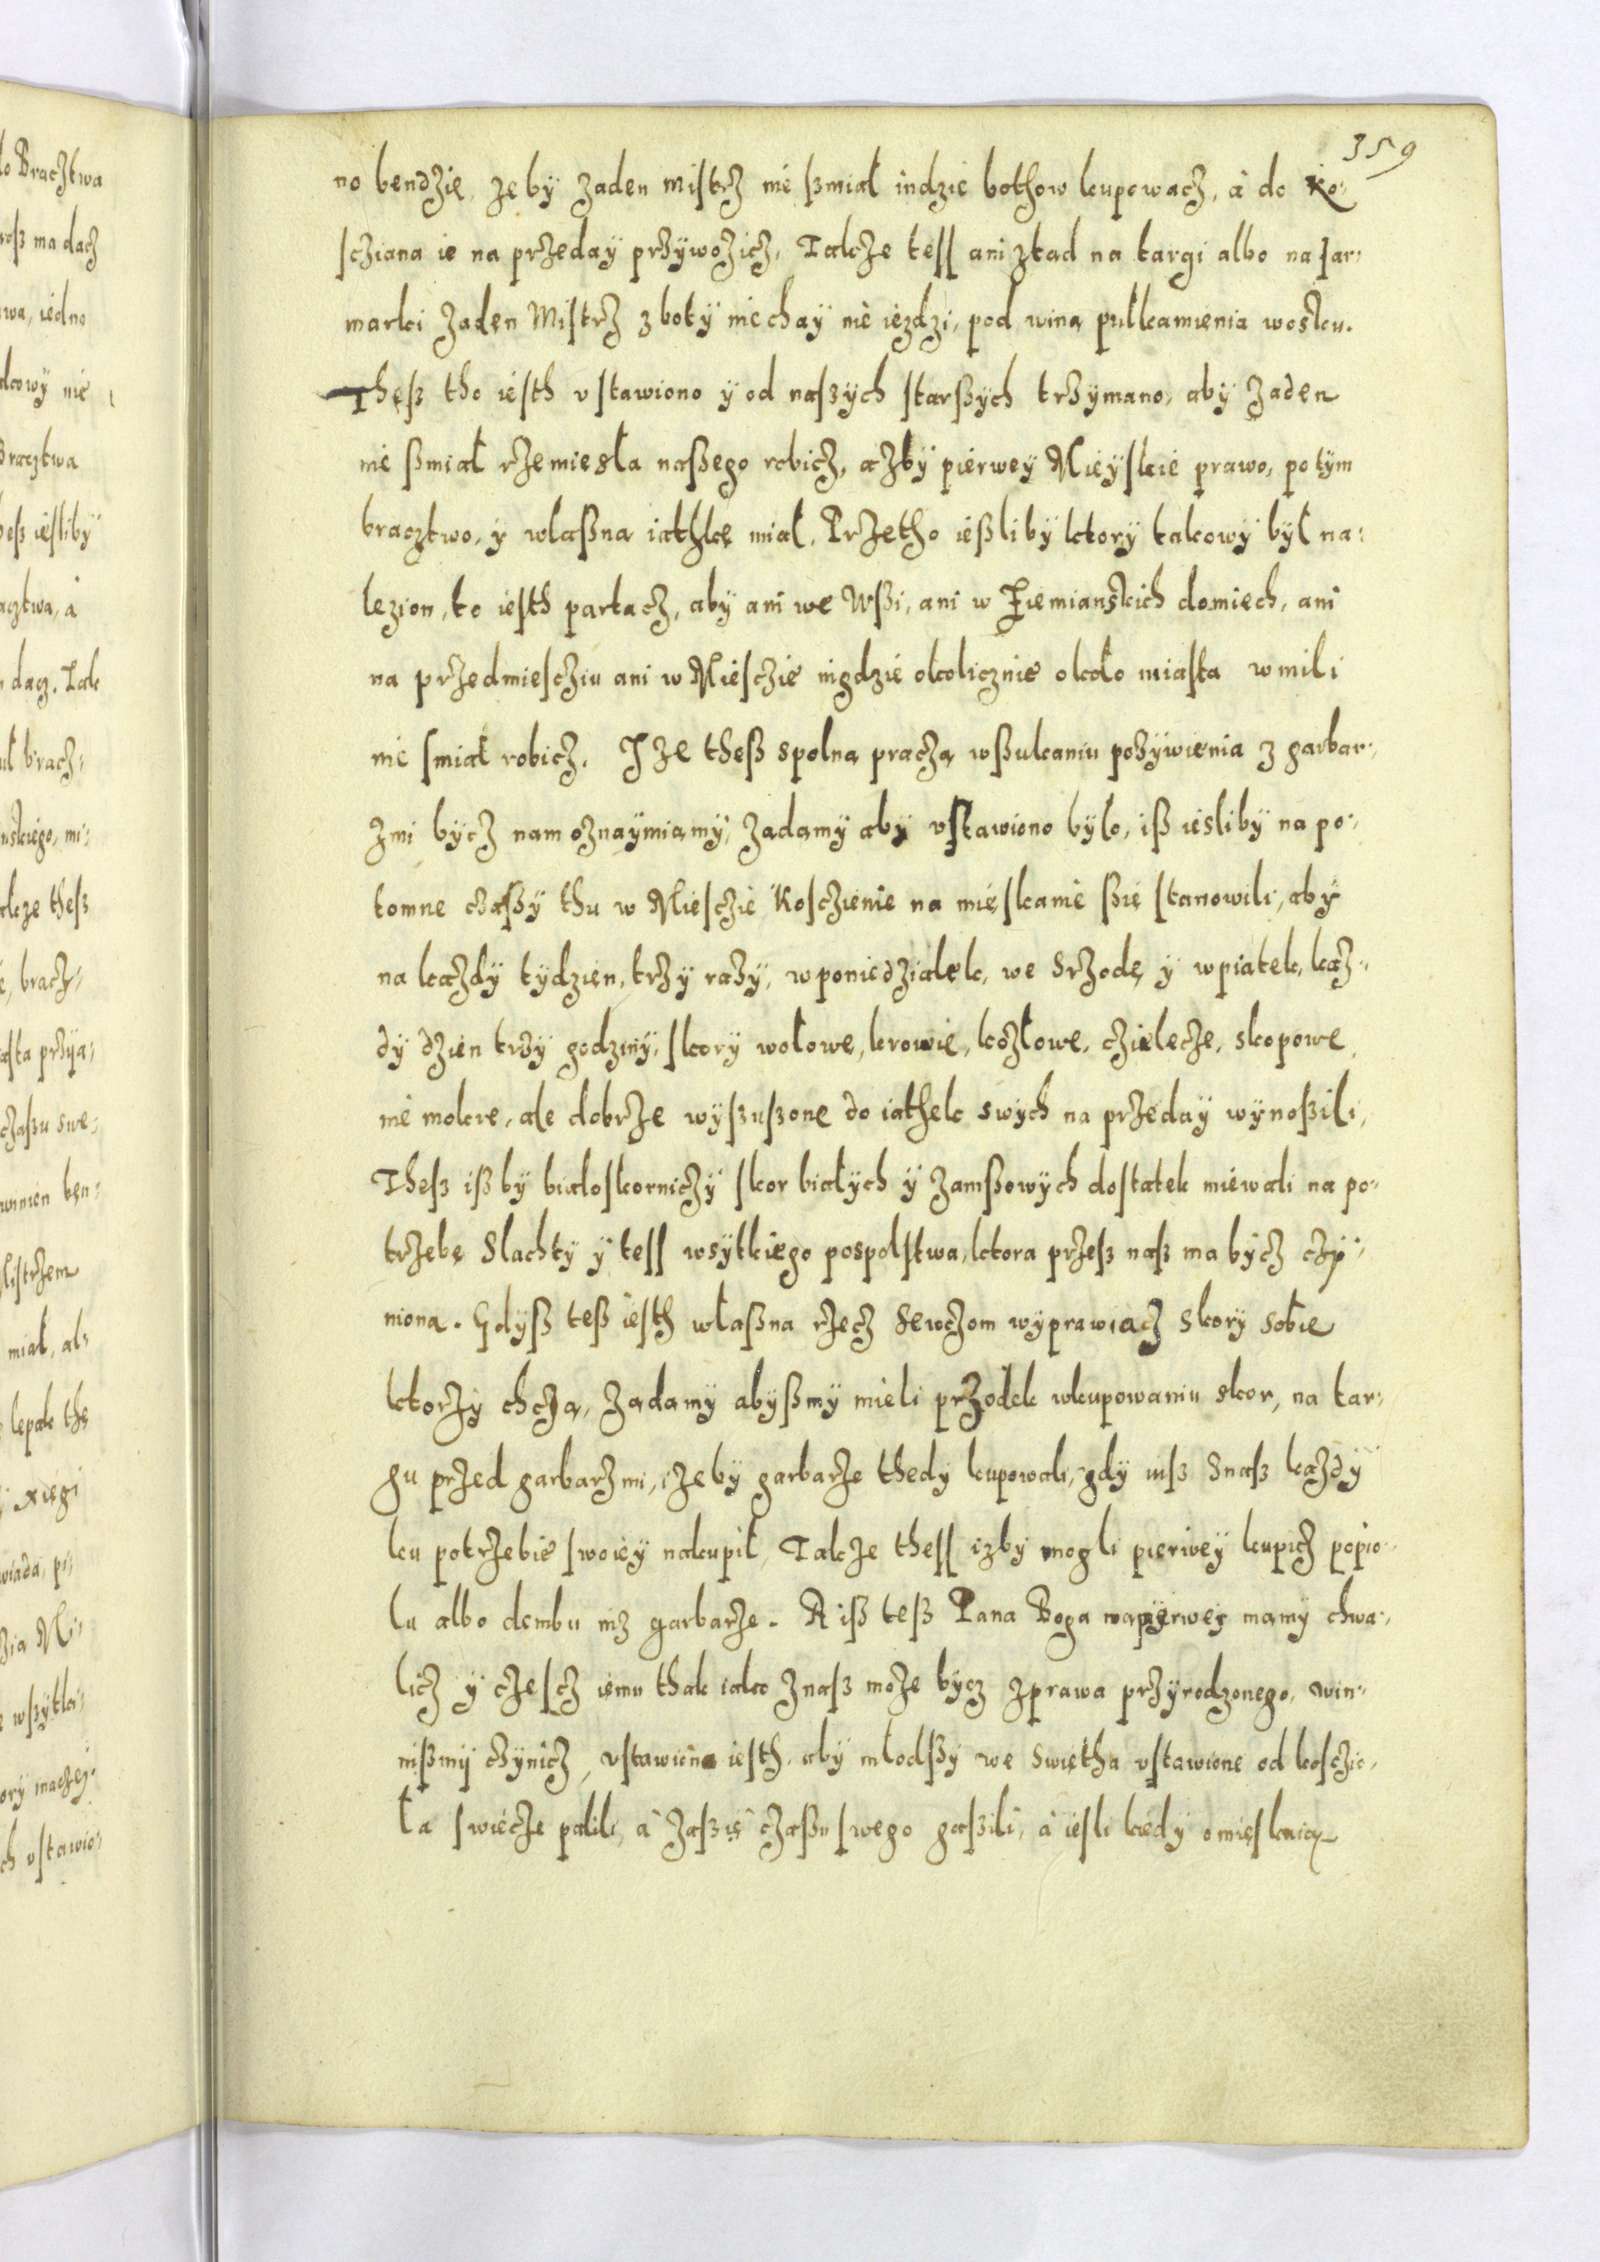 359
no bendzie, zeby zaden Mistrz nie ßmiał indzie bothow kupowacz, a do Ko-
scziana ie na przeday przywozicz, Takze tess ani ztad na targi albo na Jar-
marki zaden Mistrz z boty niechay nie iezdzi, pod winą pułkamienia wosku.
Theß tho iesth vstawiono y od naszych starßych trzymano, aby zaden
nie ßmiał rzemiesła naßego robicz, azby pierwey Mieyskie prawo, potym
bracztwo, y własną iathkę miał. Przetho ießliby ktory takowy był na-
lezion, to iesth partacz, aby ani we Wßi, ani w Ziemianskich domiech, ani
na przedmiescziu ani w Miesczie nigdzie okolicznie około miasta w mili
nie smiał robicz. Jze theß spolną praczą w ßukaniu pozywienia z garbar-
zmi bycz nam oznaymiamy, ządamy aby vstawiono było, iß iesliby na po-
tomne czaßy thu w Miesczie Kosczienie na mieskanie ßie stanowili, aby
na kazdy tydzien, trzy razy, w poniedziałek, we Srzodę y w piatek, kaz-
dy dzien trzy godziny, skory wołowe, krowie, kozłowe, czielecze, skopowe
nie mokre, ale dobrze wyszuszone do iathek swych na przeday wynoßili,
Thesz ißby białoskorniczy skor białych y zamßowych dostatek miewali na po-
trzebę Slachty y tess wsytkiego pospolstwa, ktora przesz nasz ma bycz czy-
niona. Gdyß teß iesth własna rzecz Sewczom wyprawiacz Skory sobie
ktorzy chczą, ządamy abyßmy mieli przodek w kupowaniu skor, na tar-
gu przed garbarzmi, izeby garbarze thedy kupowali, gdy iuß Snasz kazdy
ku potrzebie swoiey nakupił, Takze thess izby mogli pierwey kupicz popio-
łu albo dembu niz garbarze. A iß teß Pana Boga napyerwey mamy chwa-
licz y czescz iemu thak iako z nasz moze bycz z prawa przyrodzonego, win-
nißmy czynicz, vstawiona iesth aby młodßy we Swietha vstawione od kosczio-
ła swiecze palili, a zaszie czaßu swego gaszili, a iesli kiedy omieskaią